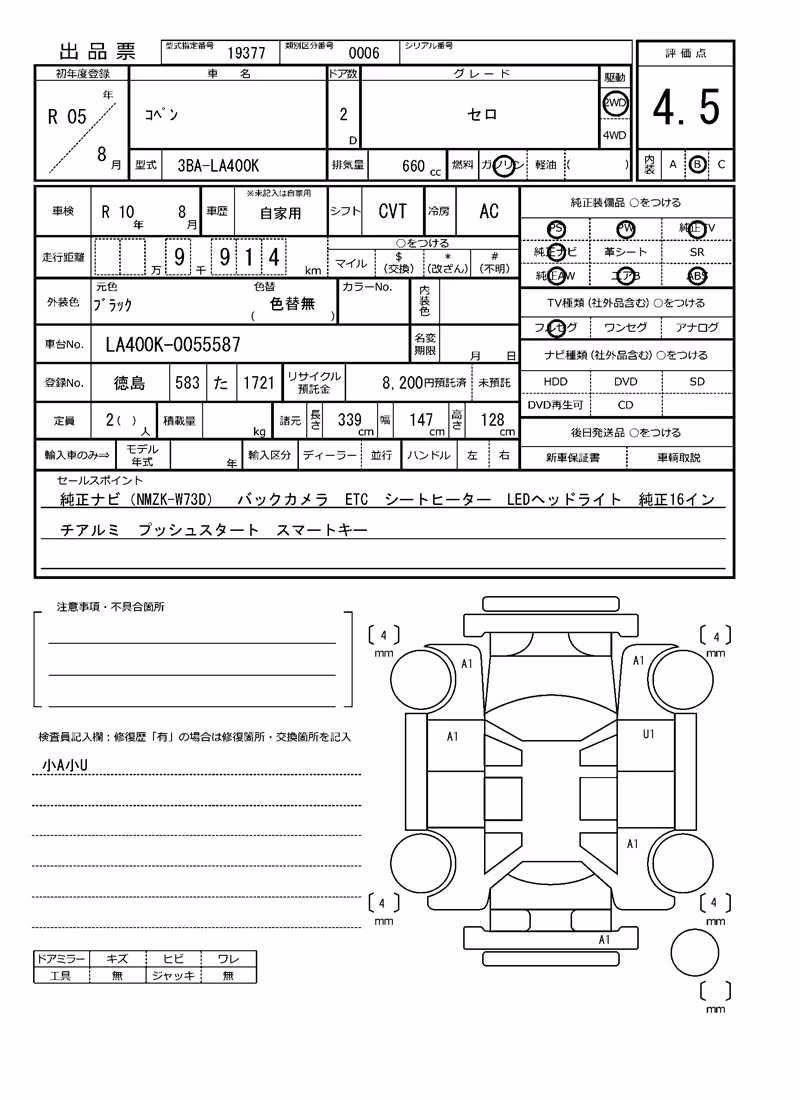 出品票 型式指定番号 19377 類別区分番号 0006 シリアル番号
評価点
4.5
内装 A B C
初年度登録 車名 ドア数 グレード 駆動
R 05 年 8 月 コペン 2 D セロ 2WD 4WD
型式 3BA-LA400K 排気量 660 cc 燃料 ガソリン 軽油 ( )
車検 R 10 年 8 月 車歴 ※未記入は自家用 自家用 シフト CVT 冷房 AC
走行距離 万 9 千 9 1 4 km ○をつける マイル $ (交換) * (改ざん) # (不明)
外装色 元色 ブラック 色替 ( 色替無 ) カラーNo. 内装色
車台No. LA400K-0055587 名変期限 月 日
登録No. 徳島 583 た 1721 リサイクル預託金 8,200円預託済 未預託
定員 2( ) 人 積載量 kg 諸元 長さ 339 cm 幅 147 cm 高さ 128 cm
輸入車のみ⇒ モデル年式 年 輸入区分 ディーラー 並行 ハンドル 左 右
純正装備品 ○をつける
PS PW 純正TV
純正ナビ 革シート SR
純正AW エアB ABS
TV種類(社外品含む)○をつける
フルセグ ワンセグ アナログ
ナビ種類(社外品含む)○をつける
HDD DVD SD
DVD再生可 CD
後日発送品 ○をつける
新車保証書 車輌取説
セールスポイント
純正ナビ(NMZK-W73D) バックカメラ ETC シートヒーター LEDヘッドライト 純正16イン
チアルミ プッシュスタート スマートキー
注意事項・不具合箇所
検査員記入欄:修復歴「有」の場合は修復箇所・交換箇所を記入
小A小U
ドアミラー キズ ヒビ ワレ
工具 無 ジャッキ 無
[ 4 ] mm [ 4 ] mm
A1 A1
A1 U1
A1
[ 4 ] mm [ 4 ] mm
A1
[ ] mm